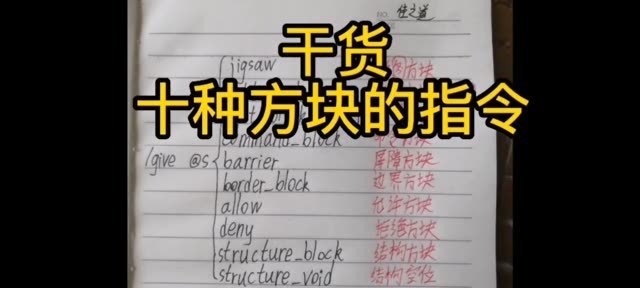 NO.
干货
十种方块的指令
jigsaw 方块
/give @s
barrier 屏障方块
border_block 边界方块
allow 允许方块
deny 拒绝方块
structure_block 结构方块
structure_void 结构空位